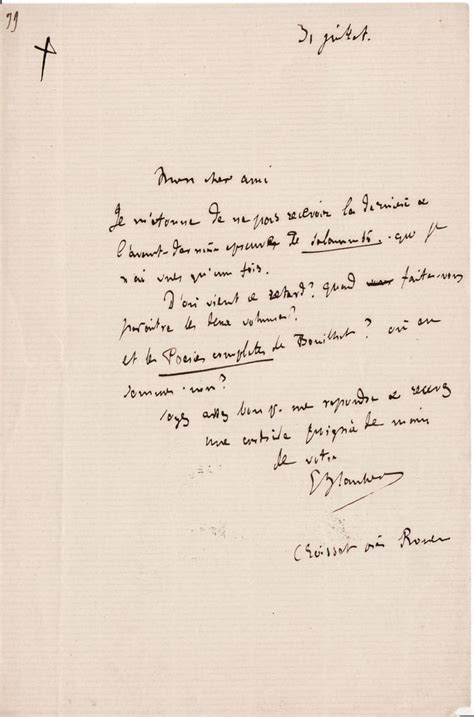 99
31 juillet.
Mon cher ami
Je m'étonne de ne pas recevoir la dernière &
l'avant-dernière épreuves de Salammbô. que je
n'ai vues qu'une fois.
D'où vient ce retard? quand faites-vous
paraître les deux volumes?
et les Poésies complètes de Bouilhet? où en
sommes-nous?
Soyez assez bon p. me répondre & recevez
une cordiale poignée de main
de votre
G Flaubert
Croisset près Rouen